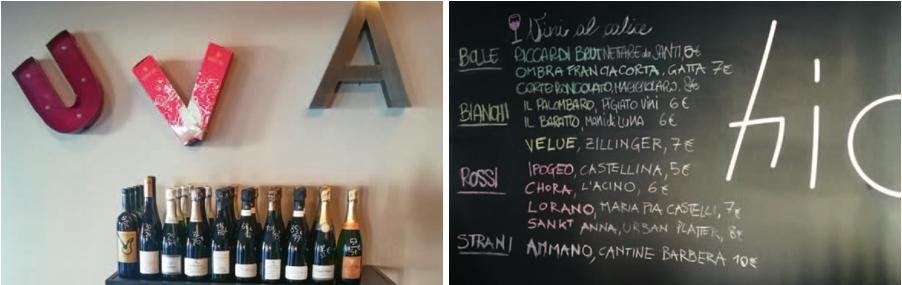 U V A
Vini al calice
BOLLE RICCARDI BRUT NETTARE dei SANTI, 6€
OMBRA FRANCIACORTA, GATTA 7€
8€
BIANCHI IL PALOMBARO, PIGIATO VINI 6€
IL BARATTO, Mani di Luna 6€
VELUE, ZILLINGER, 7€
ROSSI IPOGEO, CASTELLINA, 5€
CHORA, L'ACINO, 6€
LORANO, MARIA PIA CASTELLI, 7€
SANKT ANNA, URBAN PLATTER, 8€
STRANI AMMANO, CANTINE BARBERA 10€
hic